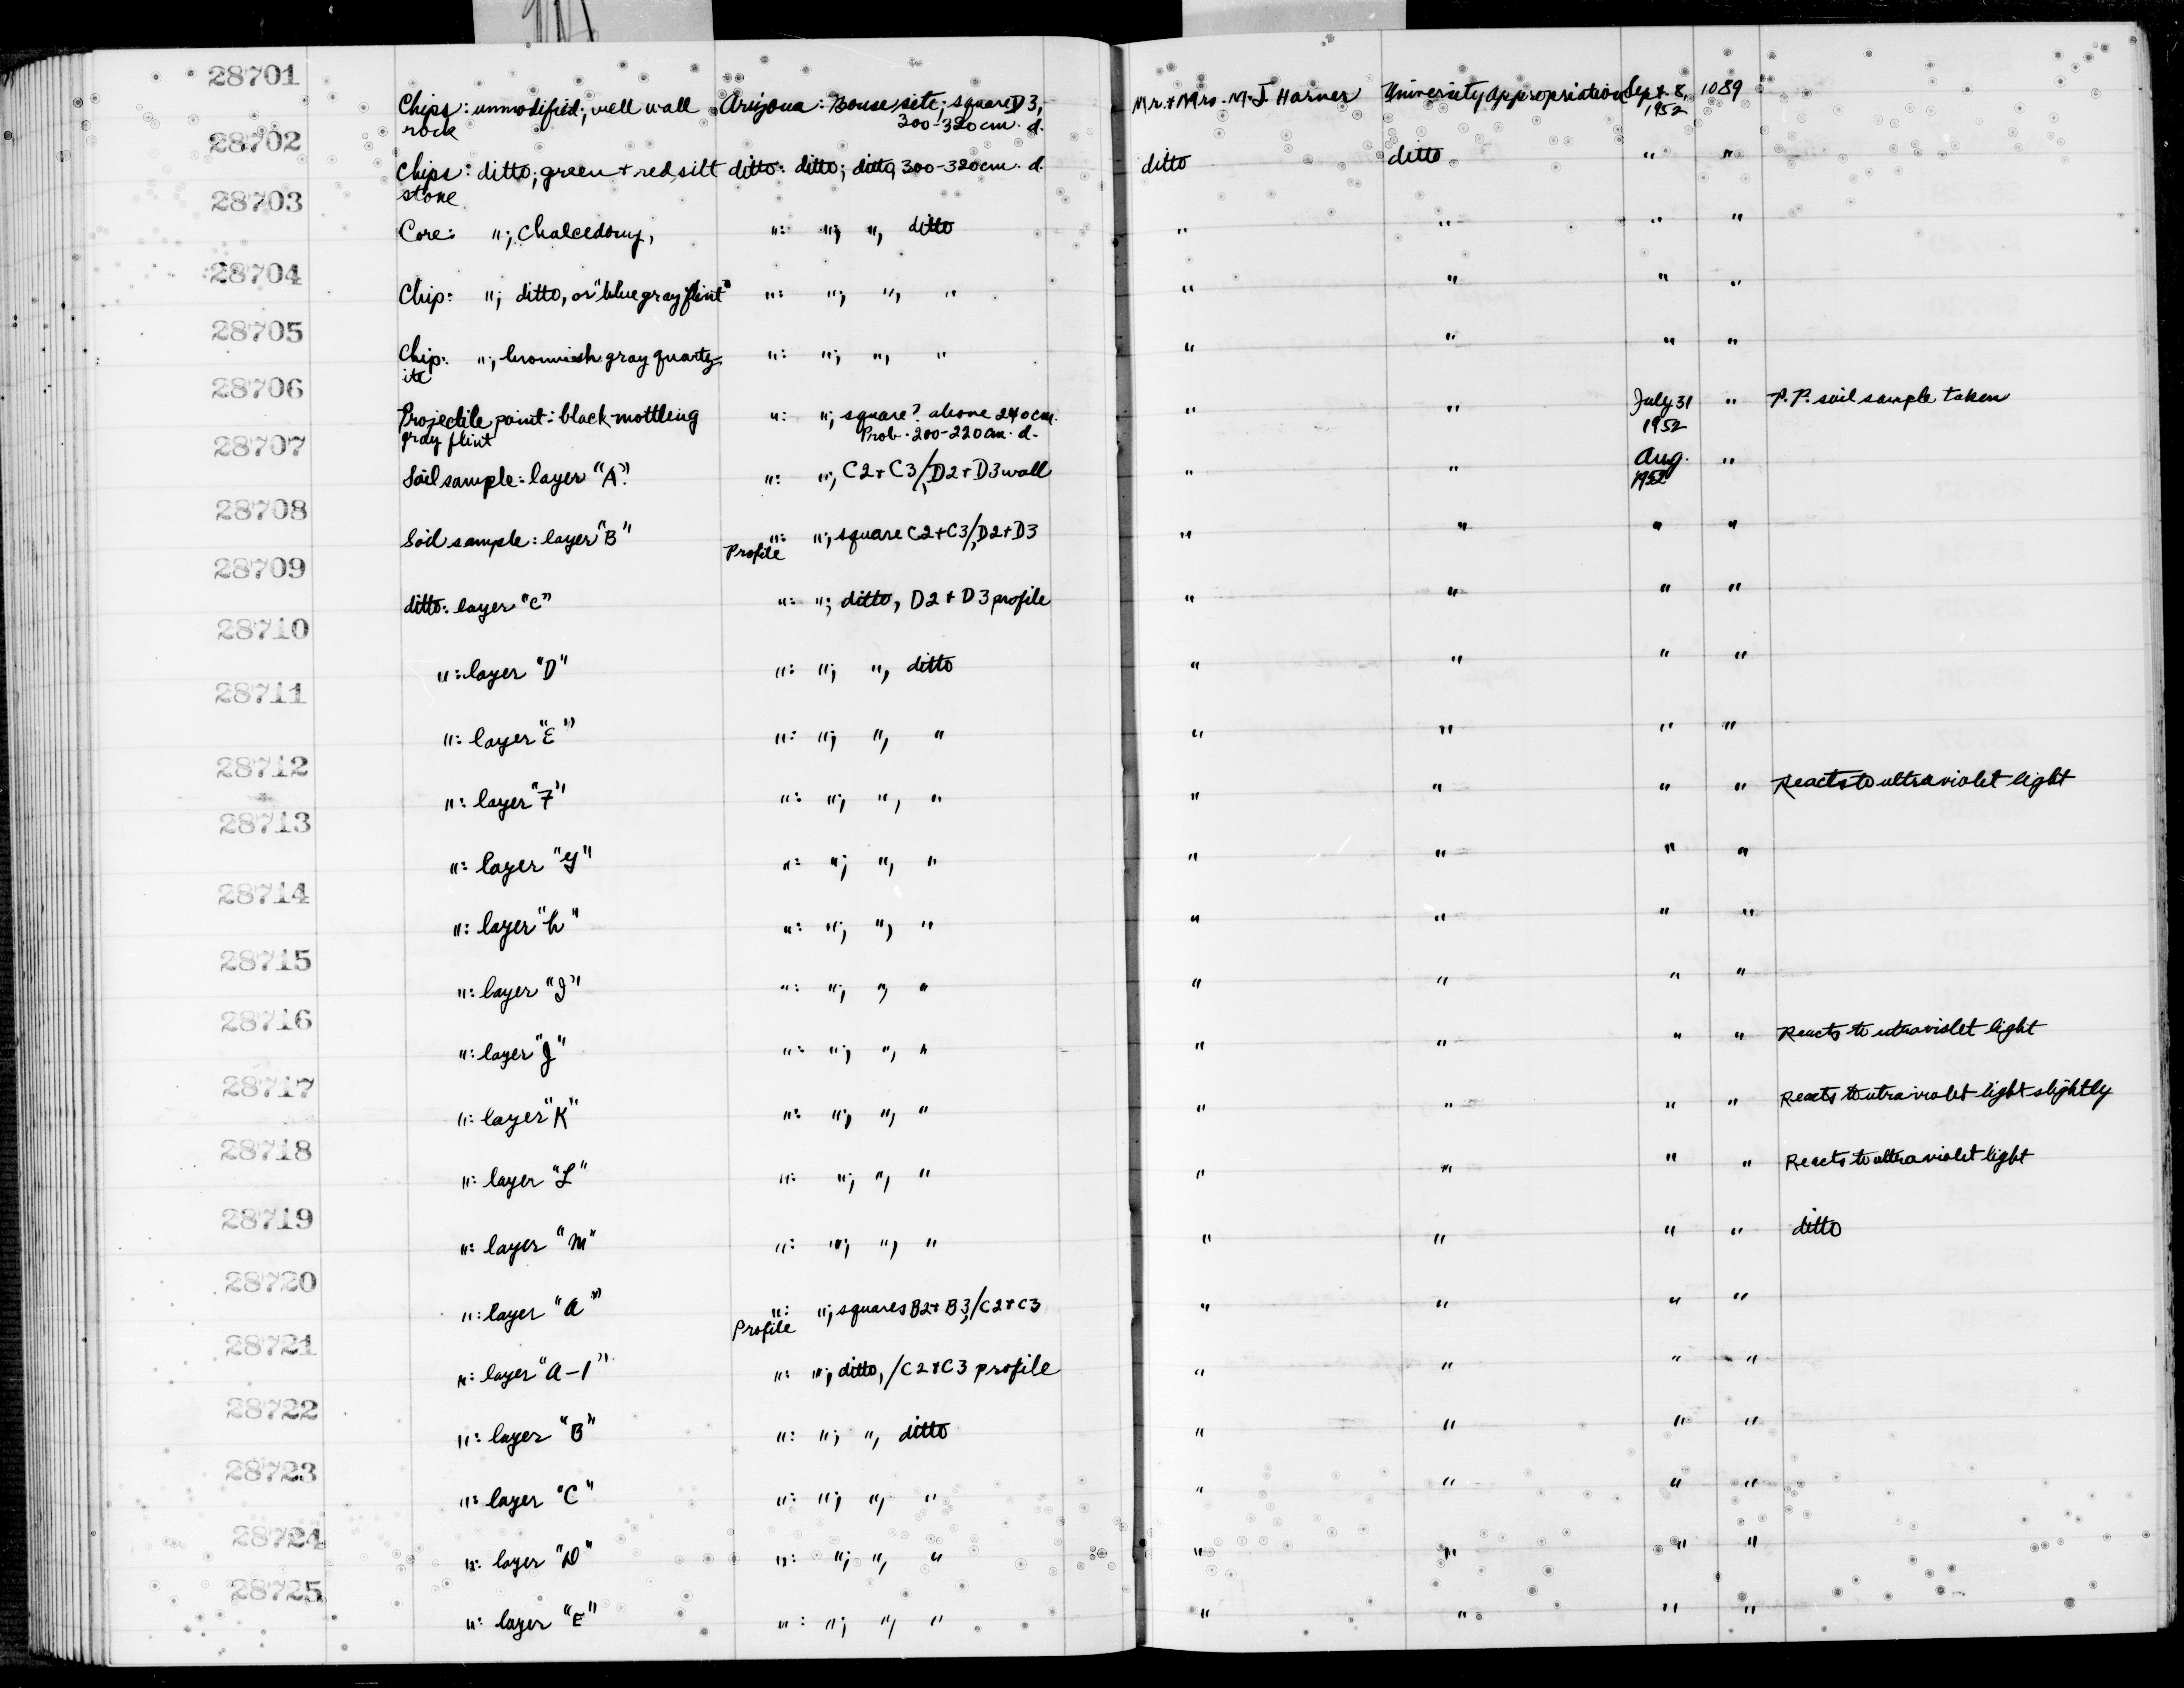 28701
Chips: unmodified; well wall rock Arizona: Bouse site; square D3, 300-320cm. d. Mr. + Mrs. M. J. Harner University Appropriation Sept. 8, 1952 1089
28702
Chips: ditto; green + red silt stone ditto: ditto; ditto, 300-320cm. d. ditto ditto " "
28703
Core: "; Chalcedony, ": "; ", ditto " " " "
28704
Chip: "; ditto, or "blue gray flint" ": "; ", " " " " "
28705
Chip: "; brownish gray quartzite ": "; ", " " " " "
28706
Projectile point: black mottling gray flint ": "; square? above 240cm. Prob. 200-220cm. d. " " July 31 1952 " P.P. soil sample taken
28707
Soil sample: layer "A" ": "; C2+C3/D2+D3 wall " " Aug. 1952 "
28708
Soil sample: layer "B" ": "; square C2+C3/D2+D3 Profile " " " "
28709
ditto: layer "C" ": "; ditto, D2+D3 profile " " " "
28710
": layer "D" ": "; ", ditto " " " "
28711
": layer "E" ": "; ", " " " " "
28712
": layer "F" ": "; ", " " " " " Reacts to ultraviolet light
28713
": layer "G" ": "; ", " " " " "
28714
": layer "h" ": "; ", " " " " "
28715
": layer "I" ": "; ", " " " " "
28716
": layer "J" ": "; ", " " " " " Reacts to utraviolet light
28717
": layer "K" ": "; ", " " " " " Reacts to utraviolet light slightly
28718
": layer "L" ": "; ", " " " " " Reacts to ultraviolet light
28719
": layer "M" ": "; ", " " " " " ditto
28720
": layer "A" ": "; squares B2+B3/C2+C3 Profile " " " "
28721
": layer "A-1" ": "; ditto, /C2+C3 profile " " " "
28722
": layer "B" ": "; ", ditto " " " "
28723
": layer "C" ": "; ", " " " " "
28724
": layer "D" ": "; ", " " " " "
28725
": layer "E" ": "; ", " " " " "